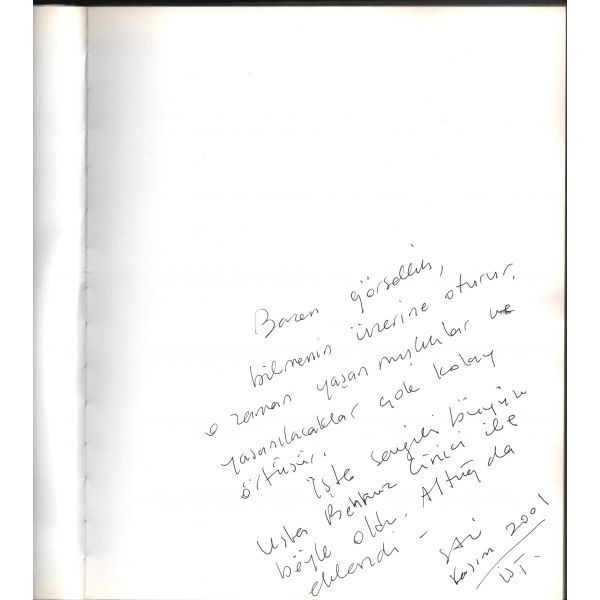 Bazen görsellik,
bilmenin üzerine oturur,
o zaman yaşanmışlıklar ve
yaşanılacaklar çok kolay
örtüşür.
İşte sevgili büyük
usta Behruz Çinici ile
böyle oldu. Altuğ da
eklendi -
Kasım 2001
İST.